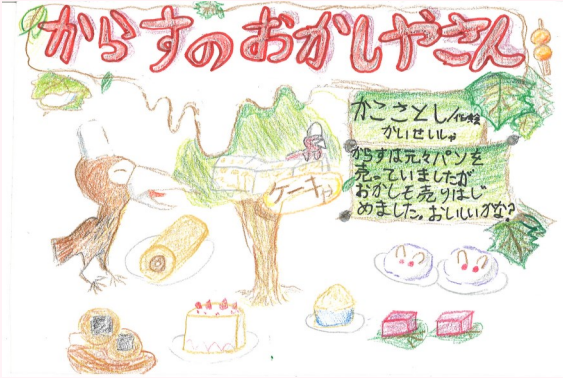 からすのおかしやさん
かこさとし/作・絵
かいせいしゃ
からすは元々パンを
売っていましたが
おかしを売りはじ
めました。おいしいかな?
ケーキや